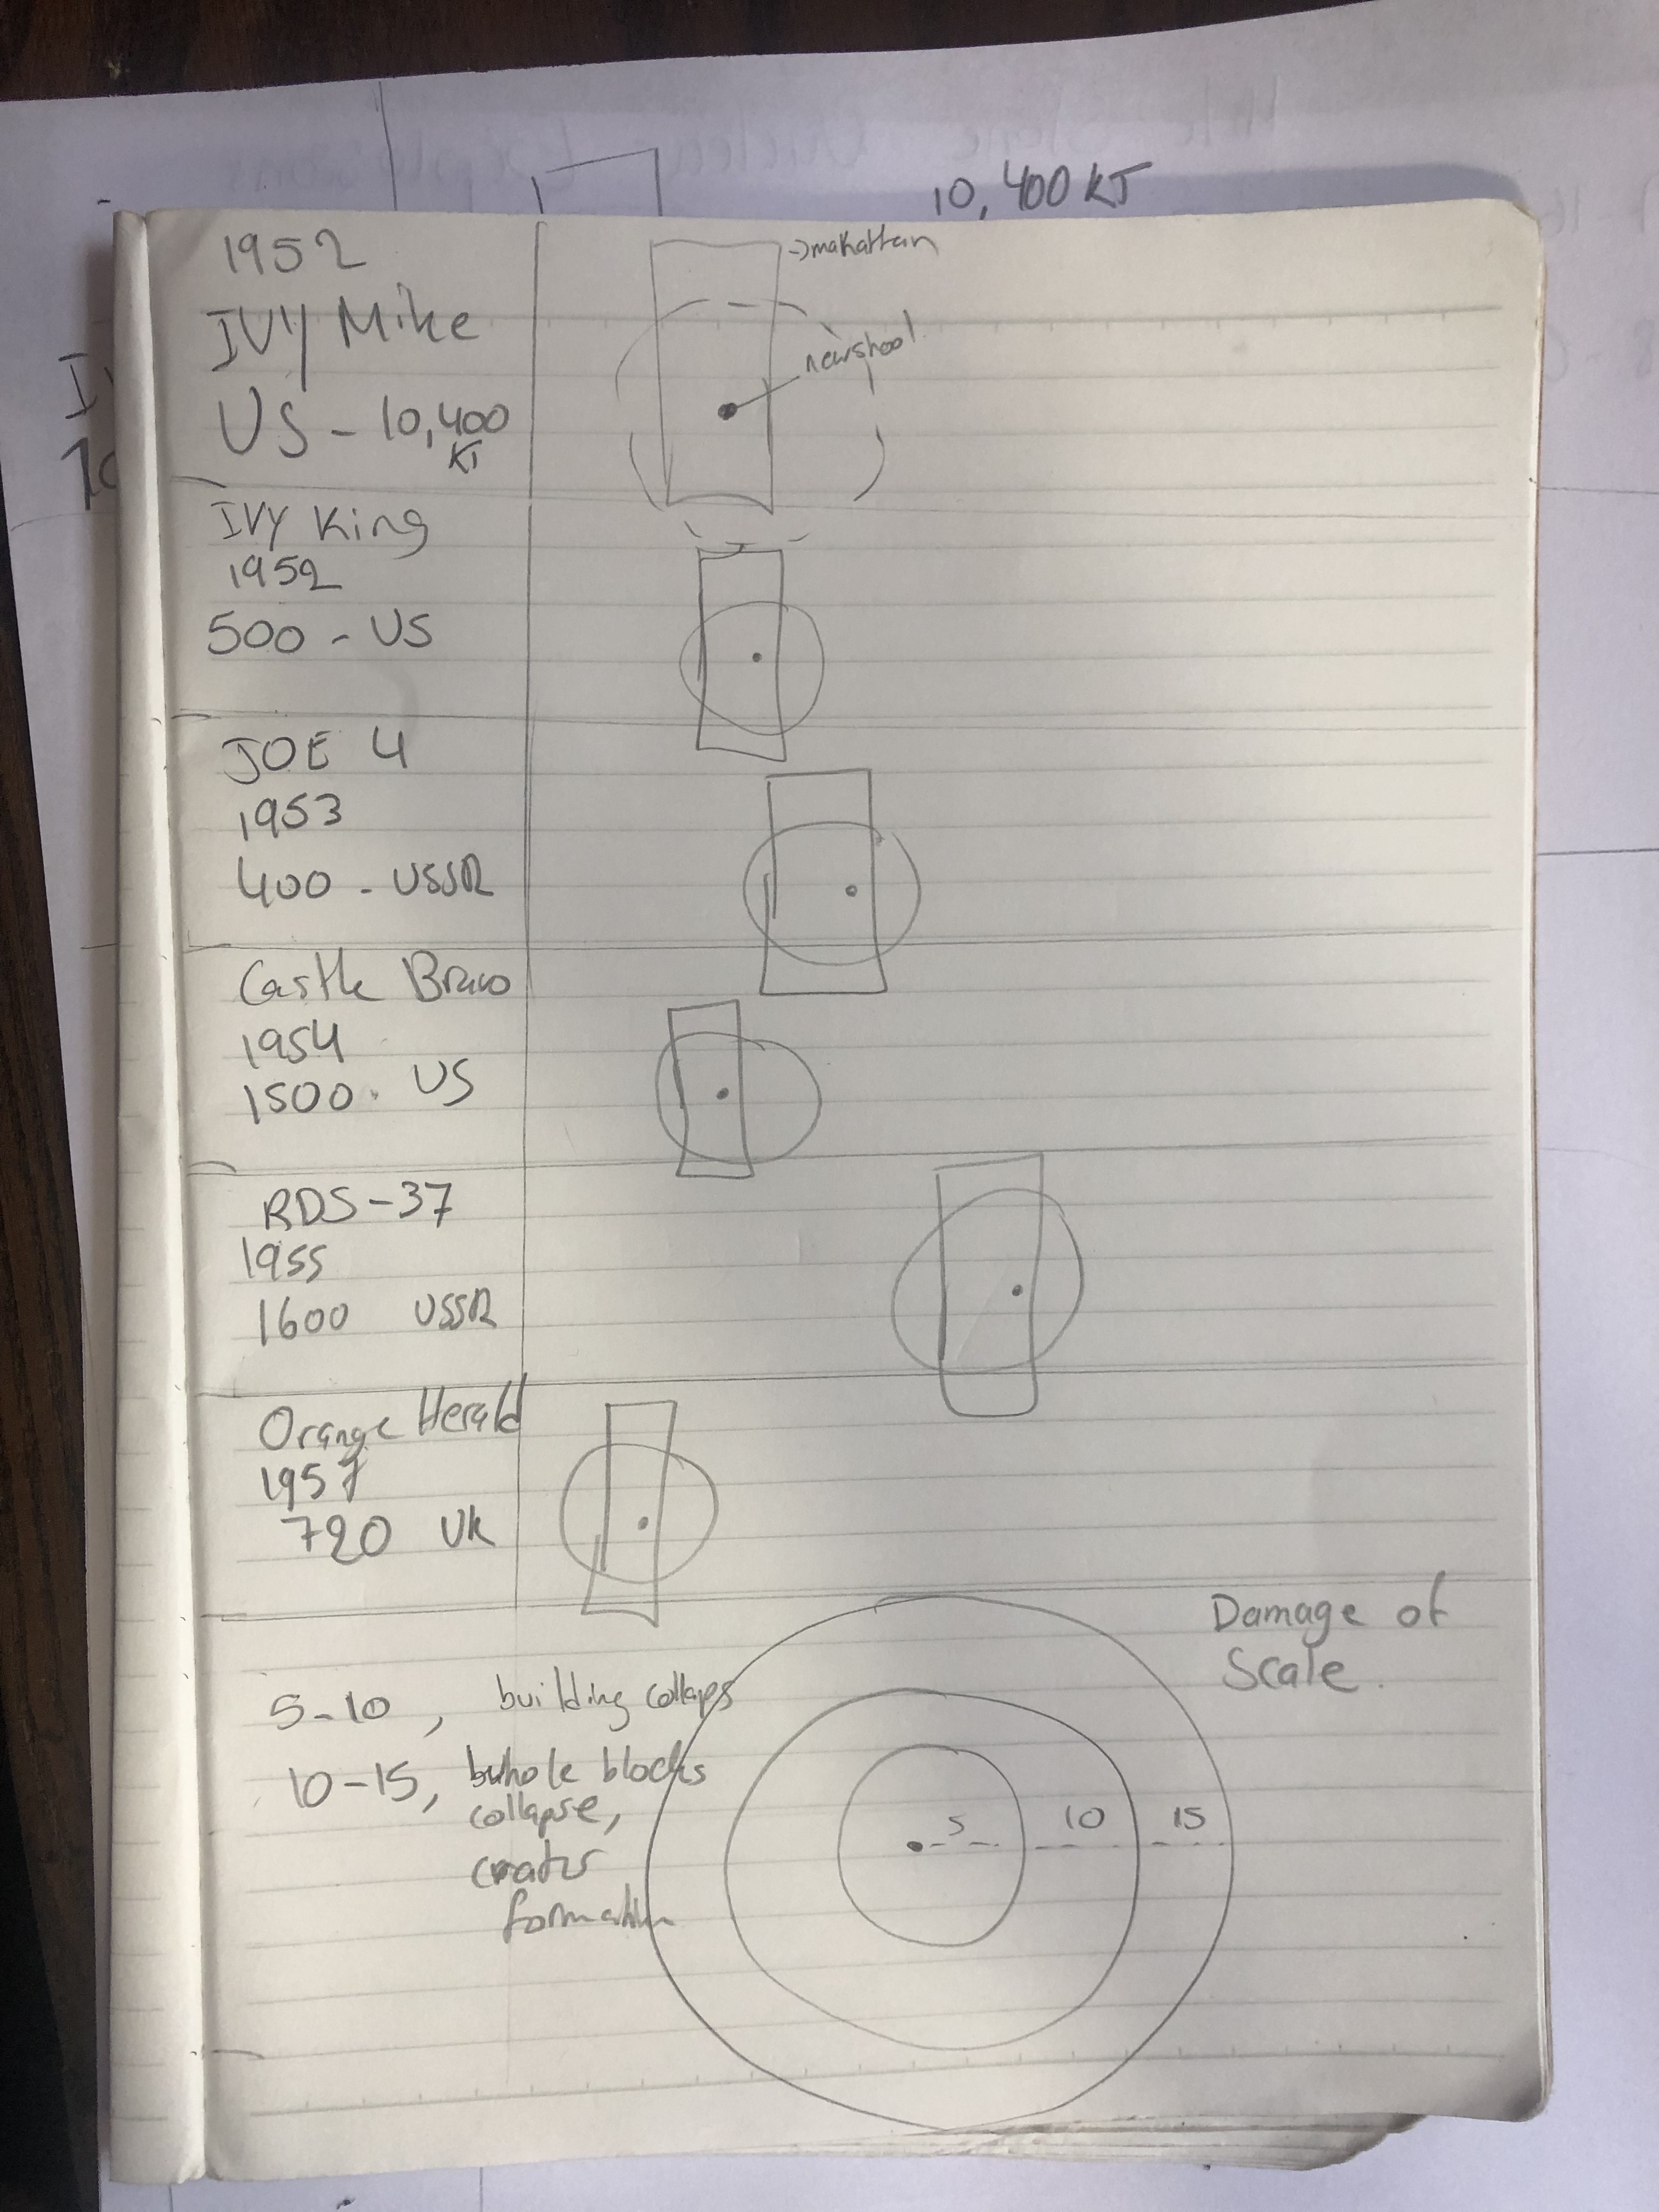 10,400 KT
1952
IVY Mike
US - 10,400
KT
→ mahattan
newshool
IVY King
1952
500 - US
JOE 4
1953
400 - USSR
Castle Bravo
1954
1500. US
RDS-37
1955
1600 USSR
Orange Herald
1957
720 UK
Damage of
Scale.
5-10, building collaps
10-15, whole blocks
collapse,
crater
formation
5 10 15